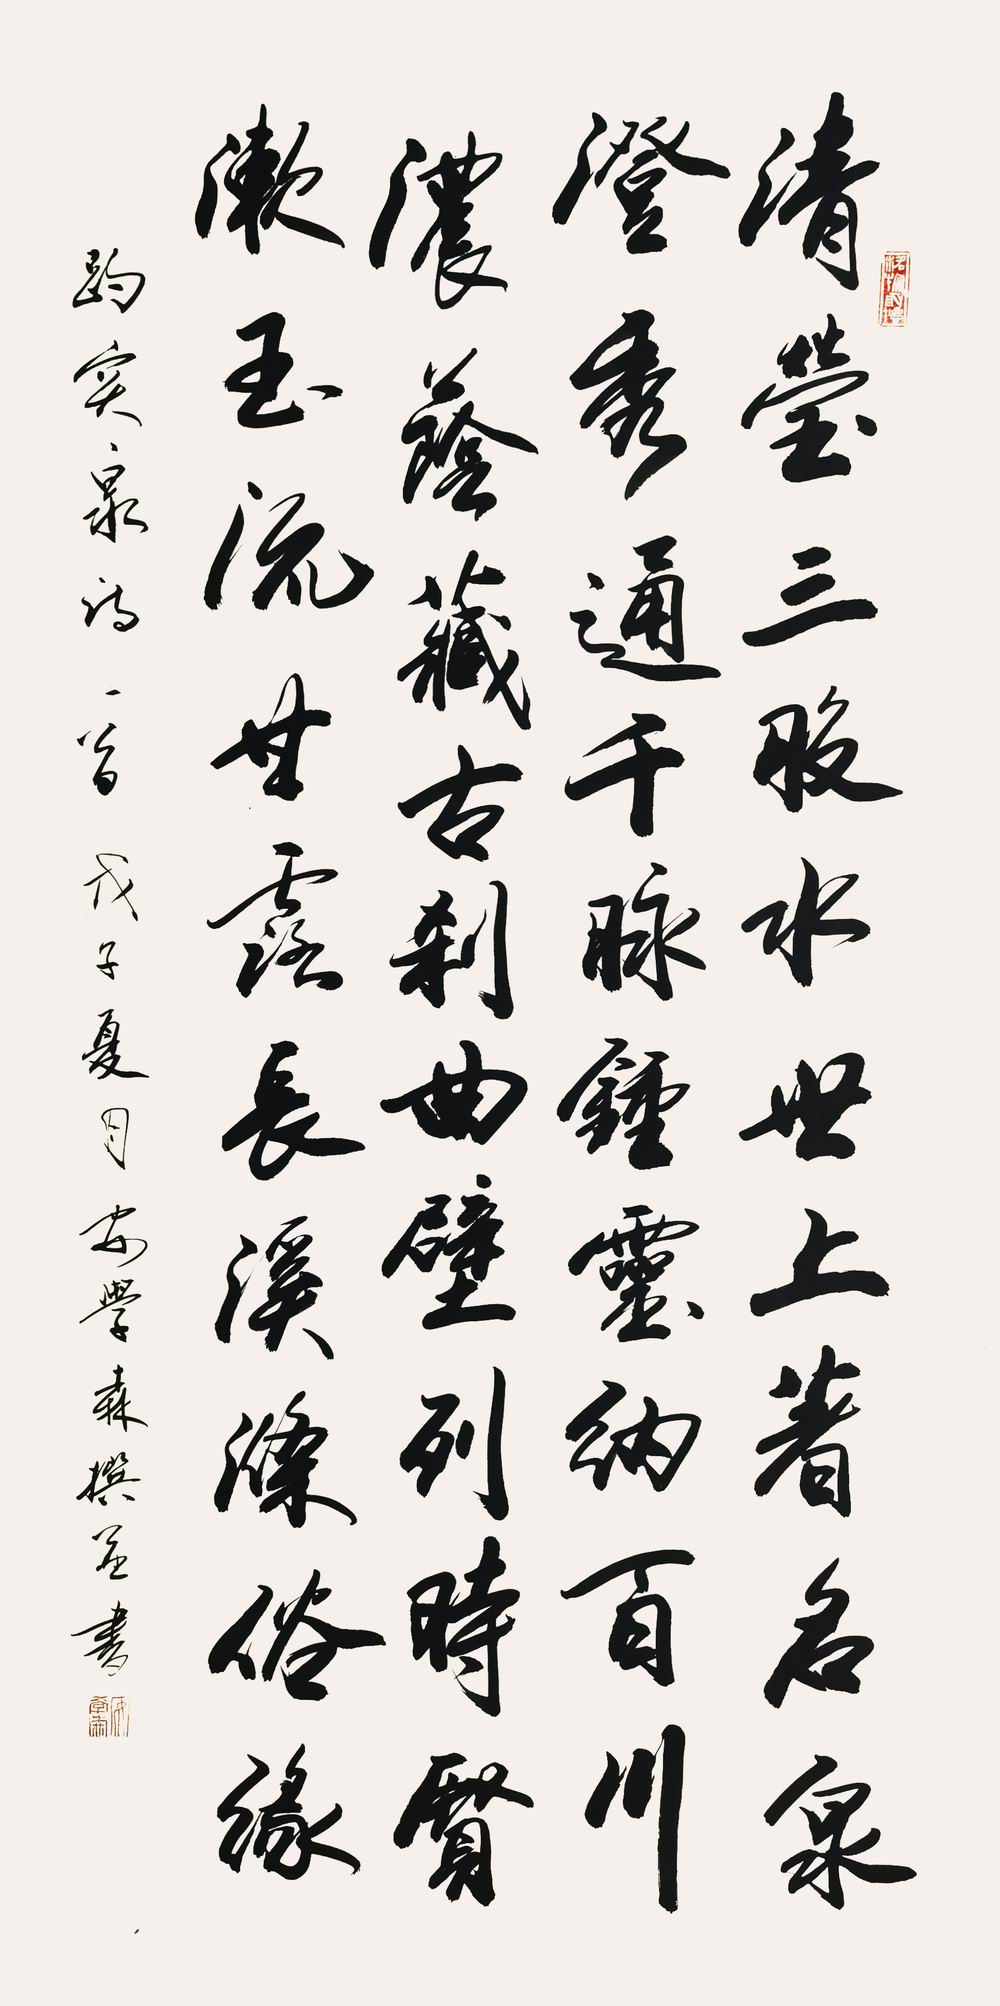 清瑩三股水世上著名泉
澄秀通千脉鍾靈納百川
濃蔭藏古刹曲壁列時賢
漱玉流甘露長溪滌俗緣
趵突泉詩一首 戊子夏月安學森撰並書